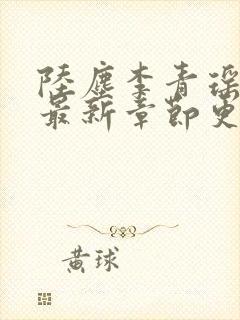 陆尘李青瑶
最新章节更
黄球